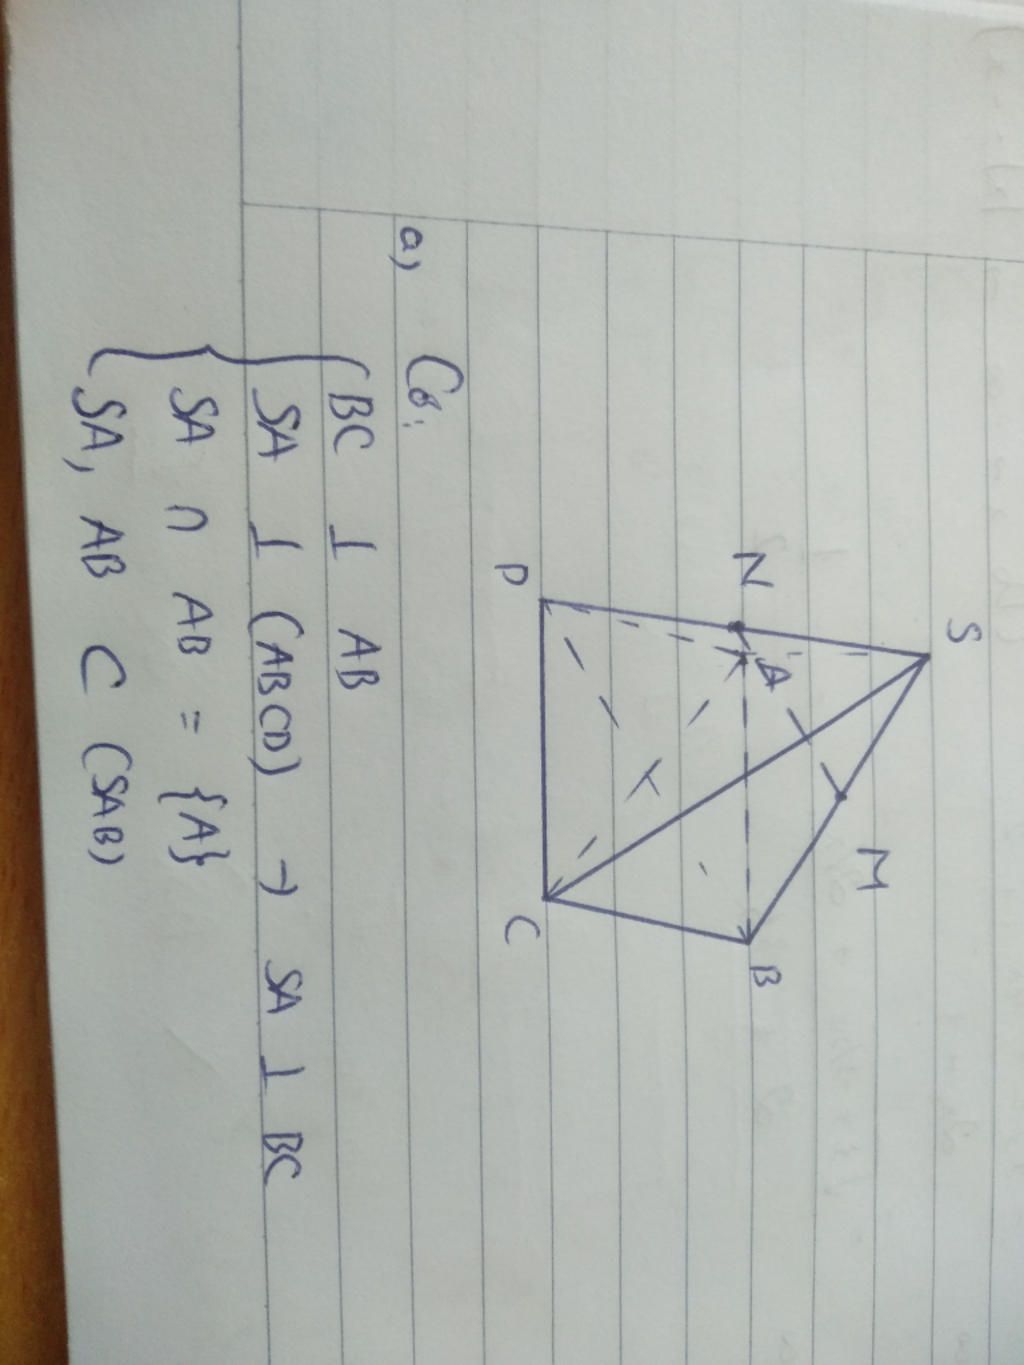 S
N
A
M
D
B
C
a) Có:
BC ⊥ AB
SA ⊥ (ABCD) → SA ⊥ BC
SA ∩ AB = {A}
SA, AB ⊂ (SAB)